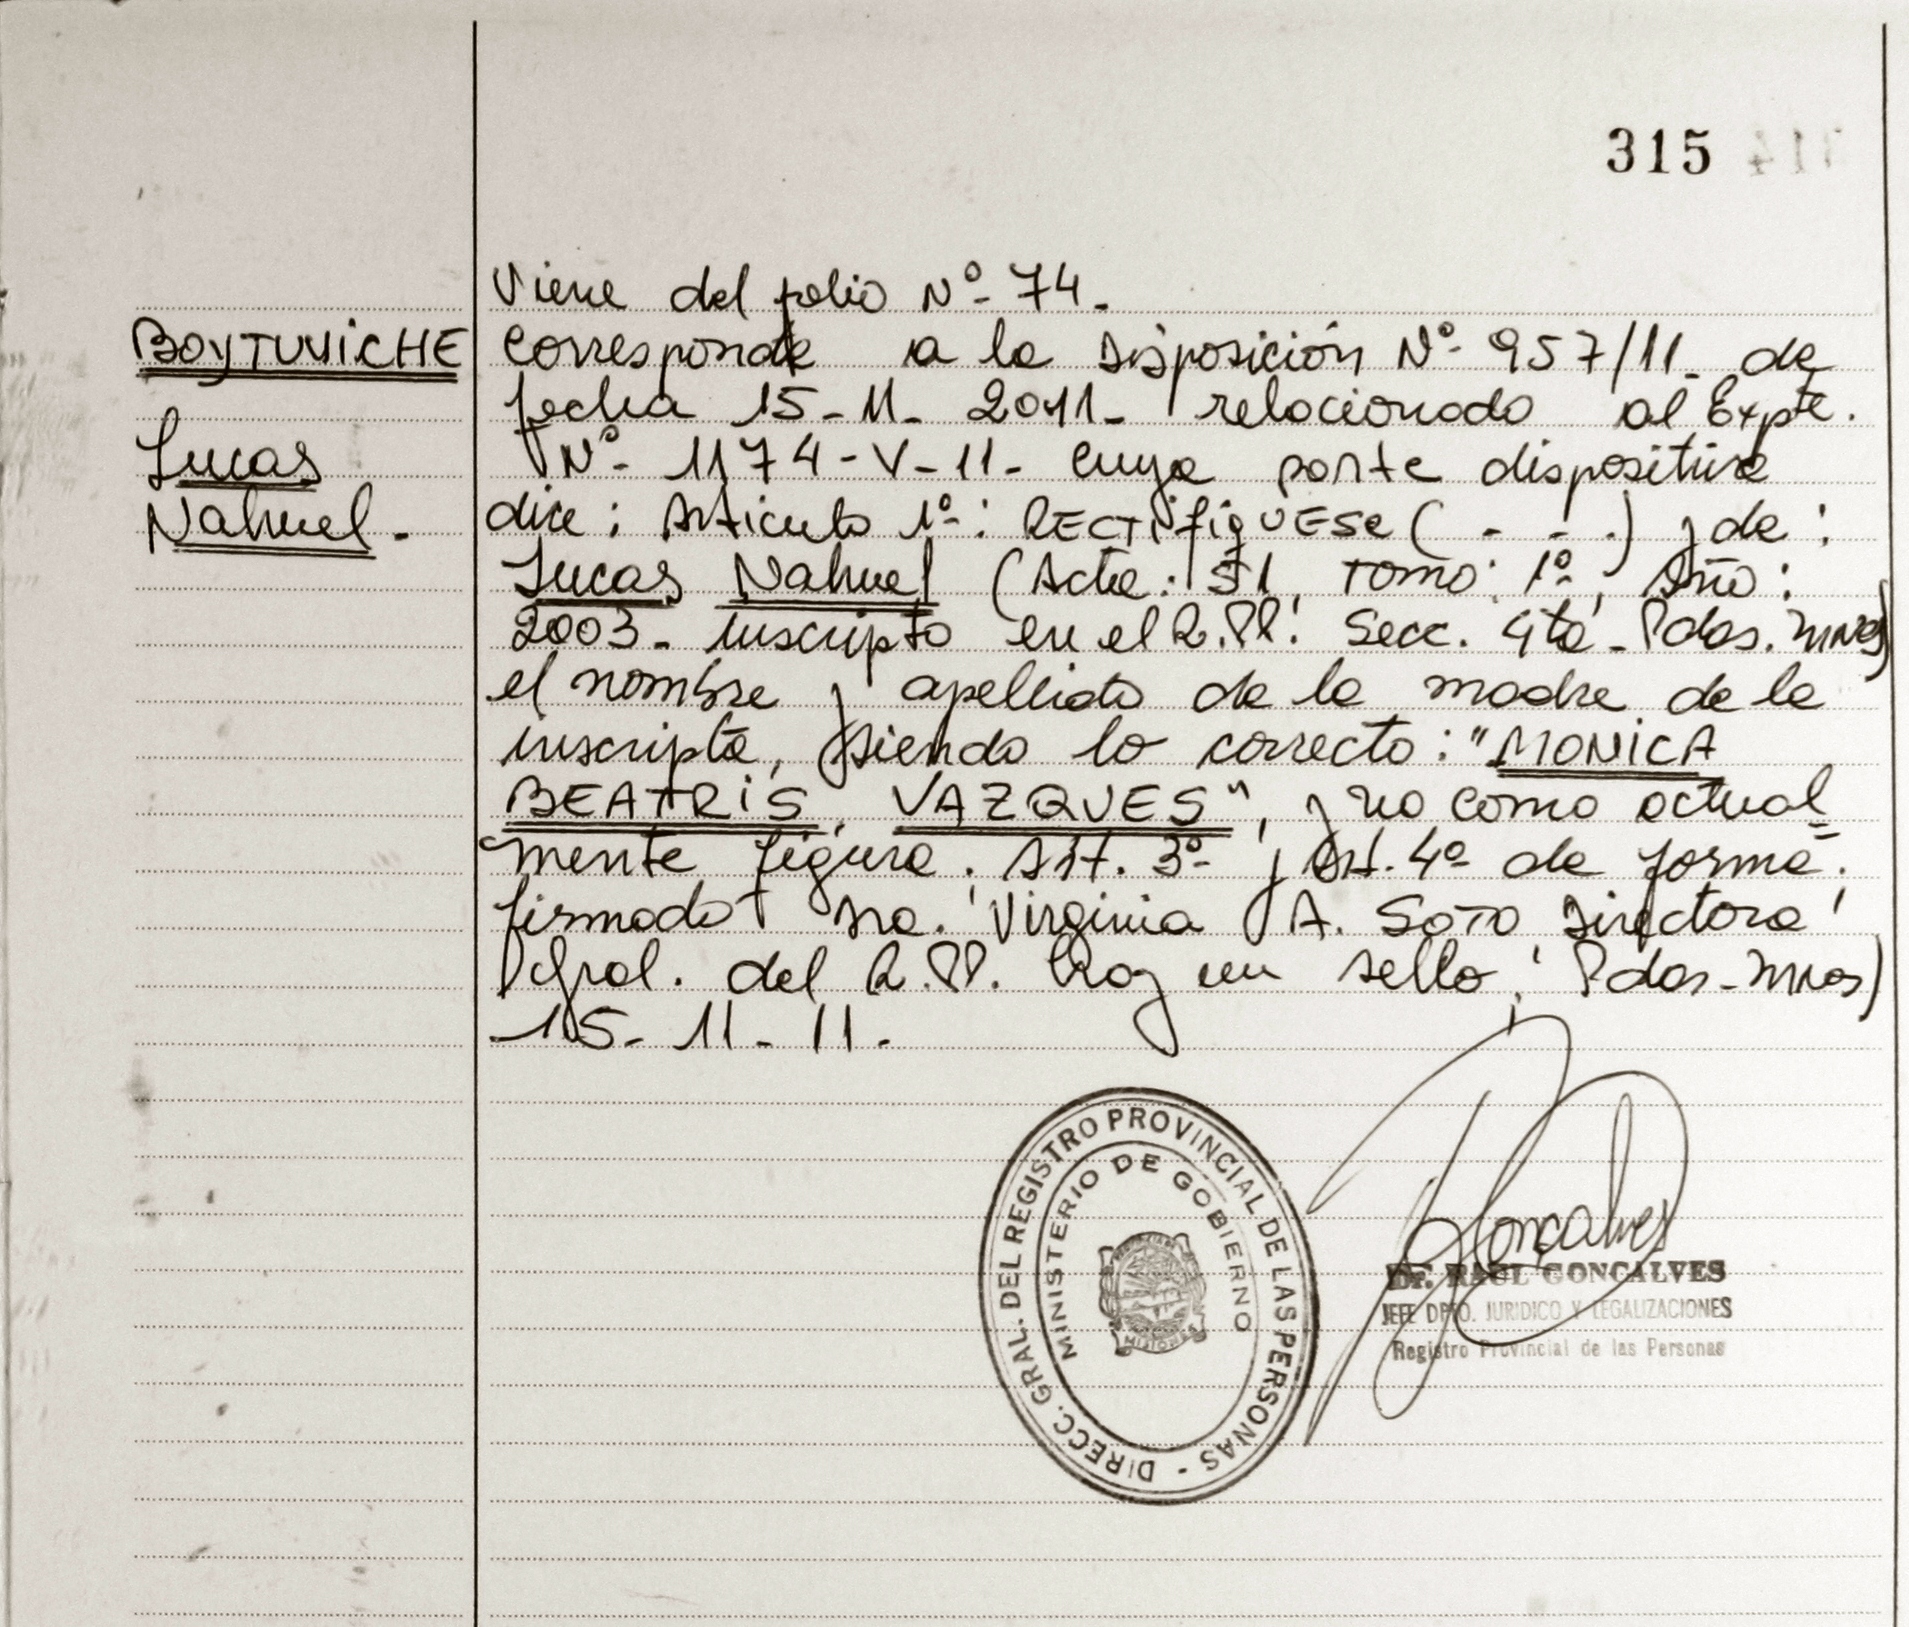 315
Viene del folio Nº 74.
BOYTUVICHE
Corresponde a la Disposición Nº 957/11 de
fecha 15-11-2011- relacionado al Expte.
Lucas
Nº 1174-V-11- cuya parte dispositiva
Nahuel.-
dice: Articulo 1º: RECTifiqUESE (- - -) y de:
Lucas Nahuel (Acta: 51, TOMO: 1º, Año:
2003- inscripto en el R.PP. Secc. 4ta- Pdas. Mnes)
el nombre y apellido de la madre de la
inscripta, siendo lo correcto: "MONICA
BEATRIS VAZQUES", y no como actual=
mente figura. Art. 3º y Art. 4º de forma.
firmado Sra. Virginia A. SOTO Directora
Gral. del R.PP. Hay un sello. Pdas-Mnes)
15-11-11.
DIRECC. GRAL. DEL REGISTRO PROVINCIAL DE LAS PERSONAS -
MINISTERIO DE GOBIERNO
Dr. RAUL GONCALVES
JEFE DPTO. JURIDICO Y LEGALIZACIONES
Registro Provincial de las Personas